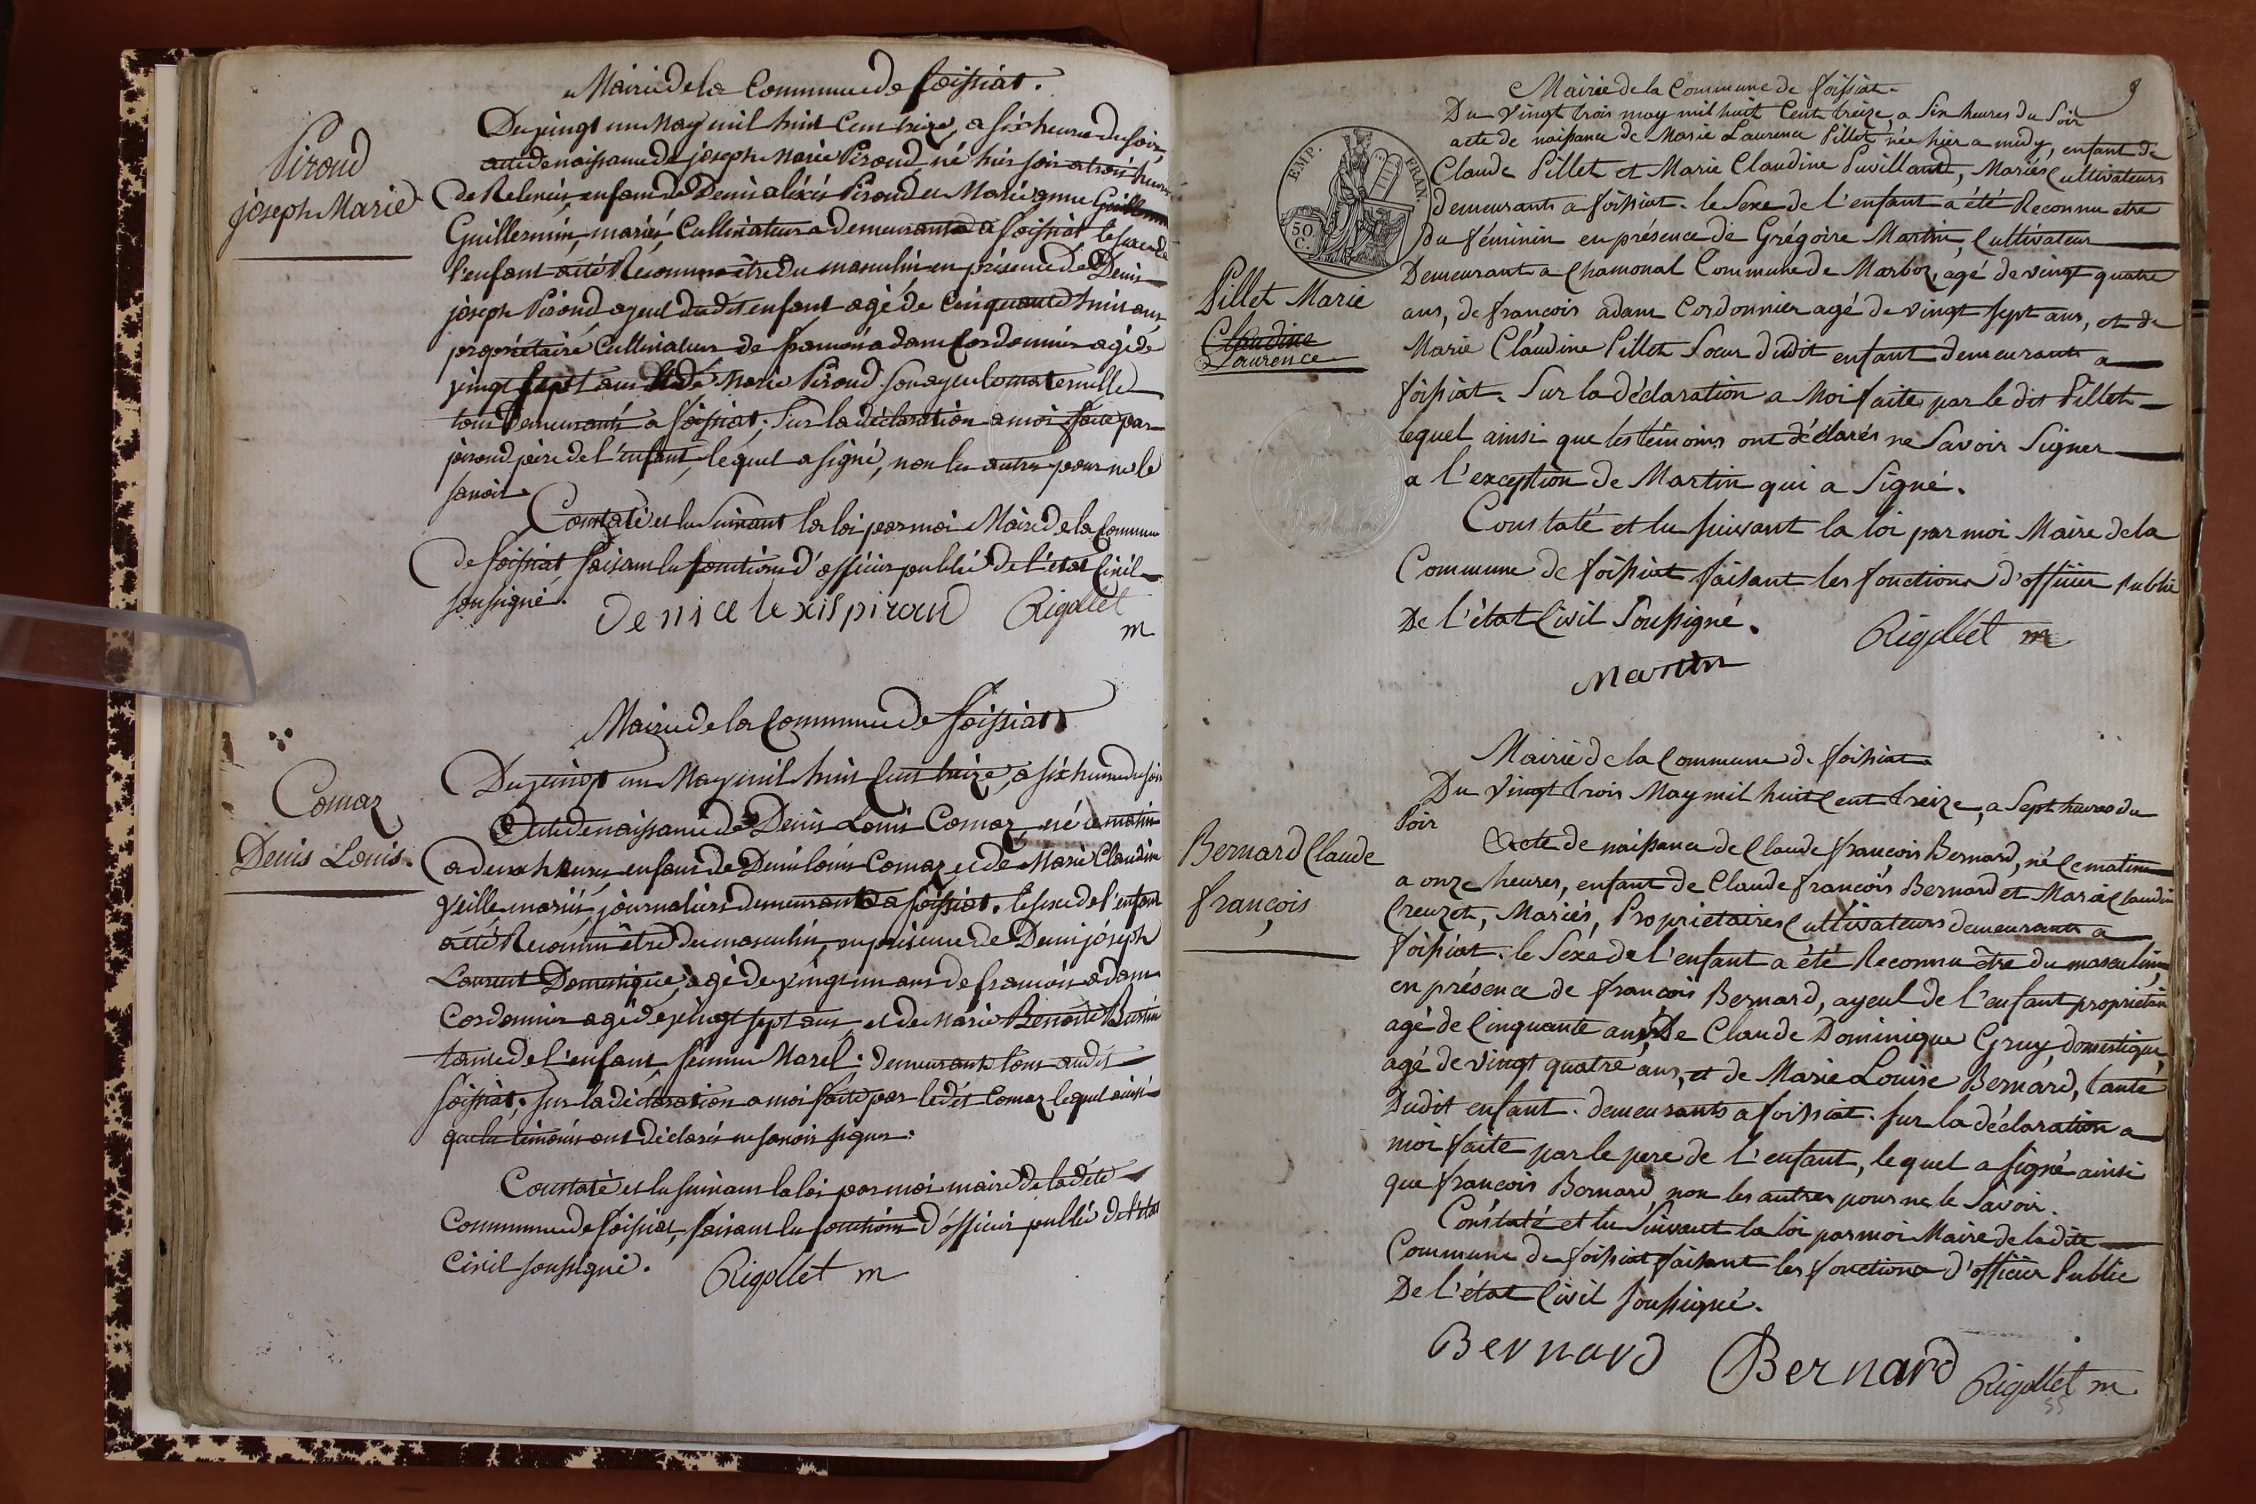 Mairie de la Commune de foissiat.
Piroud
joseph Marie
Du vingt un May mil huit Cent treize, a six heures du soir,
acte de naissance de joseph Marie Piroud, né hier soir a trois heures
de Relevée, enfant de Denis aléxis Piroud et Marie anne
Guillermin, mariés, Cultivateurs demeurants a foissiat le sexe de
l'enfant a été Reconnu être du masculin, en présence de Denis
joseph Piroud, ayeul dudit enfant agé de Cinquante huit ans,
propriétaire Cultivateur de francois adam Cordonnier agé de
vingt sept ans et de Marie Piroud son ayeule maternelle
tous Demeurants a foissiat; Sur la déclaration a moi faite par
piroud père de l'enfant, lequel a signé, non les autres pour ne le
savoir.
Constaté et lu Suivant la loi par moi Maire de la Commune
de foissiat faisant les fonctions d'officier public de l'état Civil
soussigné.
denis alexis piroud
Rigollet
m
Mairie de la Commune de foissiat
Comaz
Denis Louis.
Du vingt un May mil huit Cent treize, a six heures du soir
Acte de naissance de Denis Louis Comaz, né ce matin
a deux heures, enfant de Denis louis Comaz et de Marie Claudine
Veille mariés, journaliers demeurants a foissiat. le sexe de l'enfant
a été Reconnu être du masculin, en présence de Denis joseph
Laurent Domestique, agé de vingt un ans de francois adam
Cordonnier agé de vingt sept ans, et de Marie Benoite
tante de l'enfant, femme Morel; demeurants tous audit
foissiat; sur la déclaration a moi faite par le dit Comaz lequel ainsi
que les témoins ont déclarés ne savoir signer.
Constaté et lu suivant la loi par moi maire de la dite
Commune de foissiat, faisant les fonctions d'officier public de l'état
Civil soussigné.
Rigollet m
9
EMP. FRAN.
50
C.
Mairie de la Commune de foissiat.
Pillet Marie
Claudine
Laurence
Du Vingt trois may mil huit Cent treize, a Six heures du Soir
acte de naissance de Marie Laurence Pillet née hier a midy, enfant de
Claude Pillet et Marie Claudine Puvilland, Mariés Cultivateurs
demeurants a foissiat. le Sexe de l'enfant a été Reconnu etre
du féminin en présence de Grégoire Martin, Cultivateur
Demeurant a Chamonal Commune de Marboz, agé de vingt quatre
ans, de francois adam Cordonnier agé de vingt sept ans, et de
Marie Claudine Pillet Soeur dudit enfant demeurants a
foissiat. Sur la déclaration a Moi faite par le dit Pillet
lequel ainsi que les témoins ont déclarés ne Savoir Signer
a l'exception de Martin qui a Signé.
Constaté et lu suivant la loi par moi Maire de la
Commune de foissiat faisant les fonctions d'officier public
De l'état Civil Soussigné.
Rigollet m
Martin
Mairie de la Commune de foissiat
Bernard Claude
françois
Du Vingt trois May mil huit Cent treize, a Sept heures du
Soir
Acte de naissance de Claude francois Bernard, né Ce matin
a onze heures, enfant de Claude francois Bernard et Marie Claudine
Creuzet, Mariés, Proprietaires Cultivateurs demeurants a
foissiat. le Sexe de l'enfant a été Reconnu être du masculin,
en présence de francois Bernard, ayeul de l'enfant propriétaire
agé de Cinquante ans, De Claude Dominique Gruy, domestique,
agé de vingt quatre ans, et de Marie Louise Bernard, tante
Dudit enfant. demeurants a foissiat. sur la déclaration a
moi faite par le pere de l'enfant, lequel a signé ainsi
que francois Bernard, non les autres pour ne le Savoir.
Constaté et lu Suivant la loi par moi Maire de la dite
Commune de foissiat faisant les fonctions d'officier Public
De l'état Civil soussigné.
Bernard Bernard Rigollet m